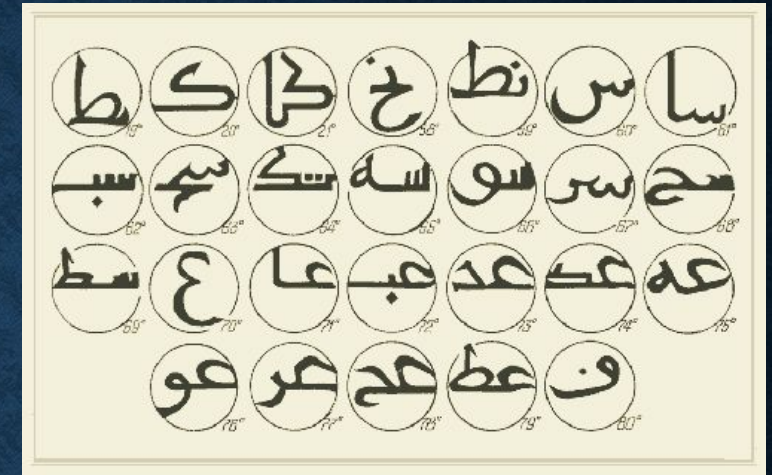 يط 19° ك 20° كا 21° نح 58° نط 59° س 60° سا 61°
سب 62° سج 63° 64° سه 65° سو 66° سر 67° سح 68°
سط 69° ع 70° عا 71° عب 72° 73° عد 74° عه 75°
عو 76° عر 77° عح 78° عط 79° ف 80°